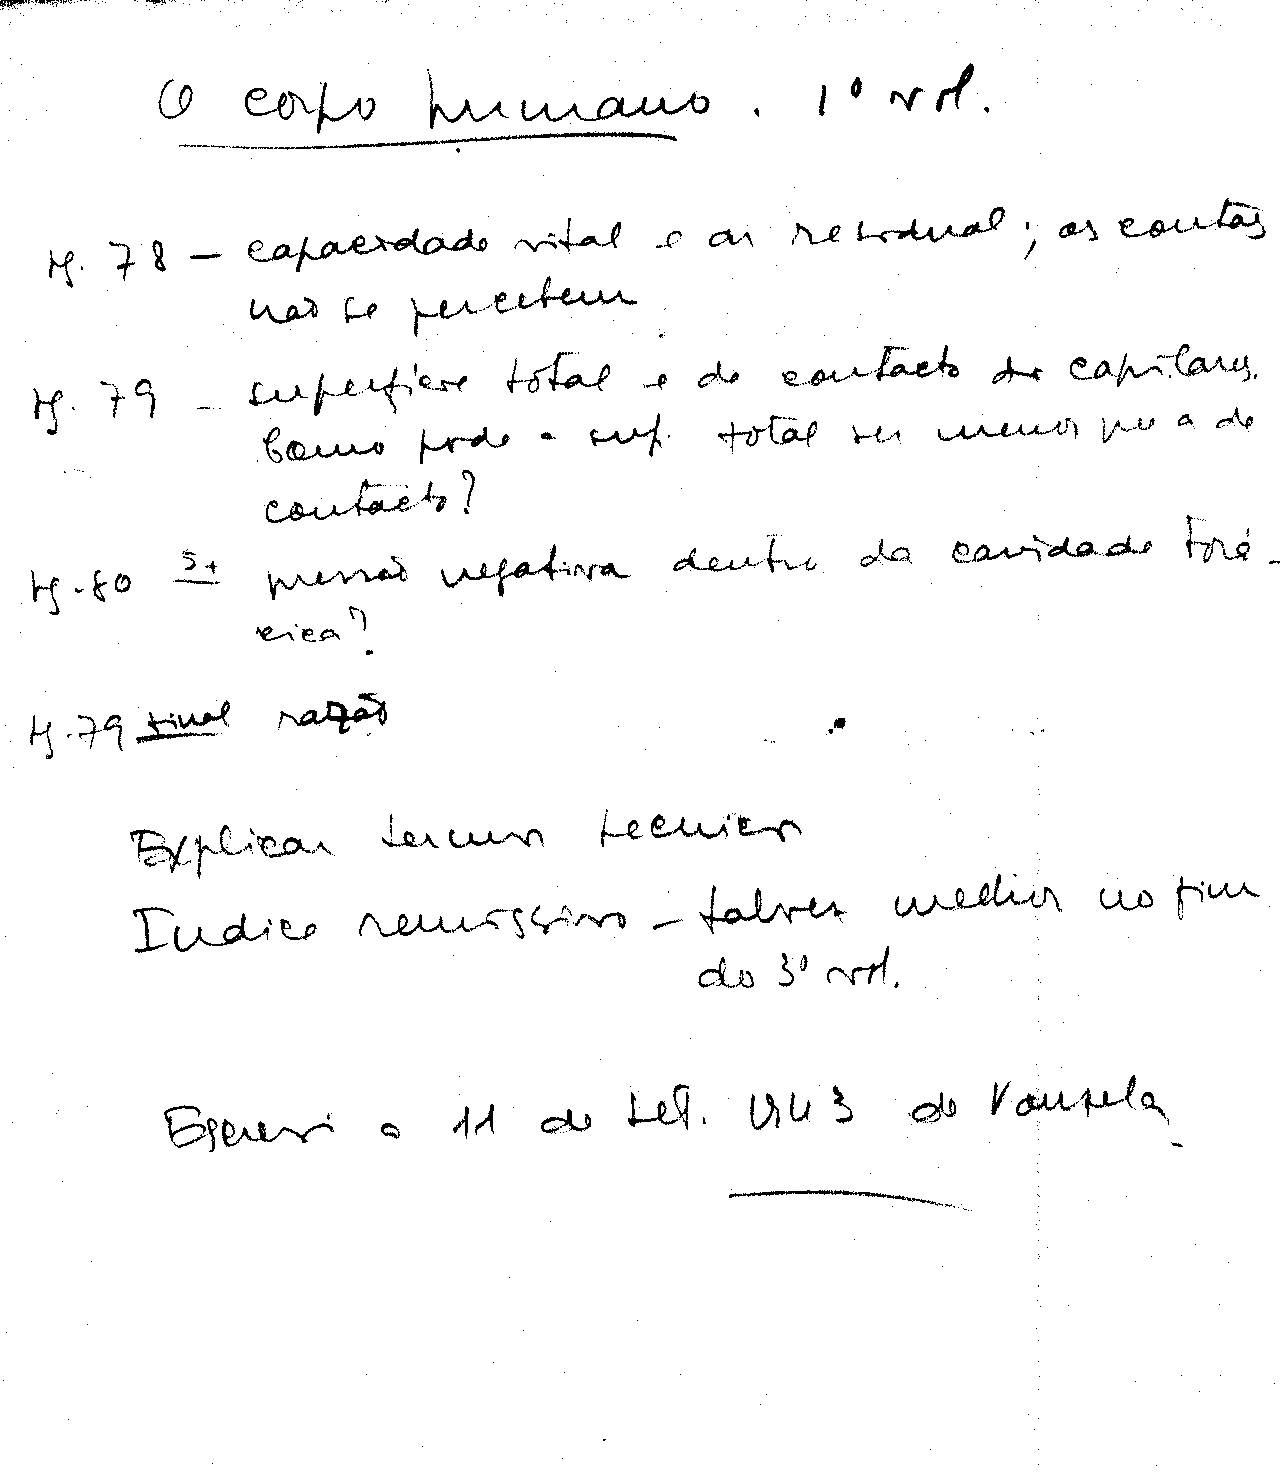 O corpo humano. 1º vol.
pg. 78 – capacidade vital e ar residual; as contas
não se percebem
pg. 79 – superfície total e de contacto dos capilares.
Como pode a sup. total ser menor que a de
contacto?
pg. 80 pressão negativa dentro da cavidade torá-
cica?
pg. 79 final razão
Explicar termos tecnicos
Indice remissivo – talvez melhor no fim
do 3º vol.
Escrevi a 11 de Set. 1943 de Vouzela